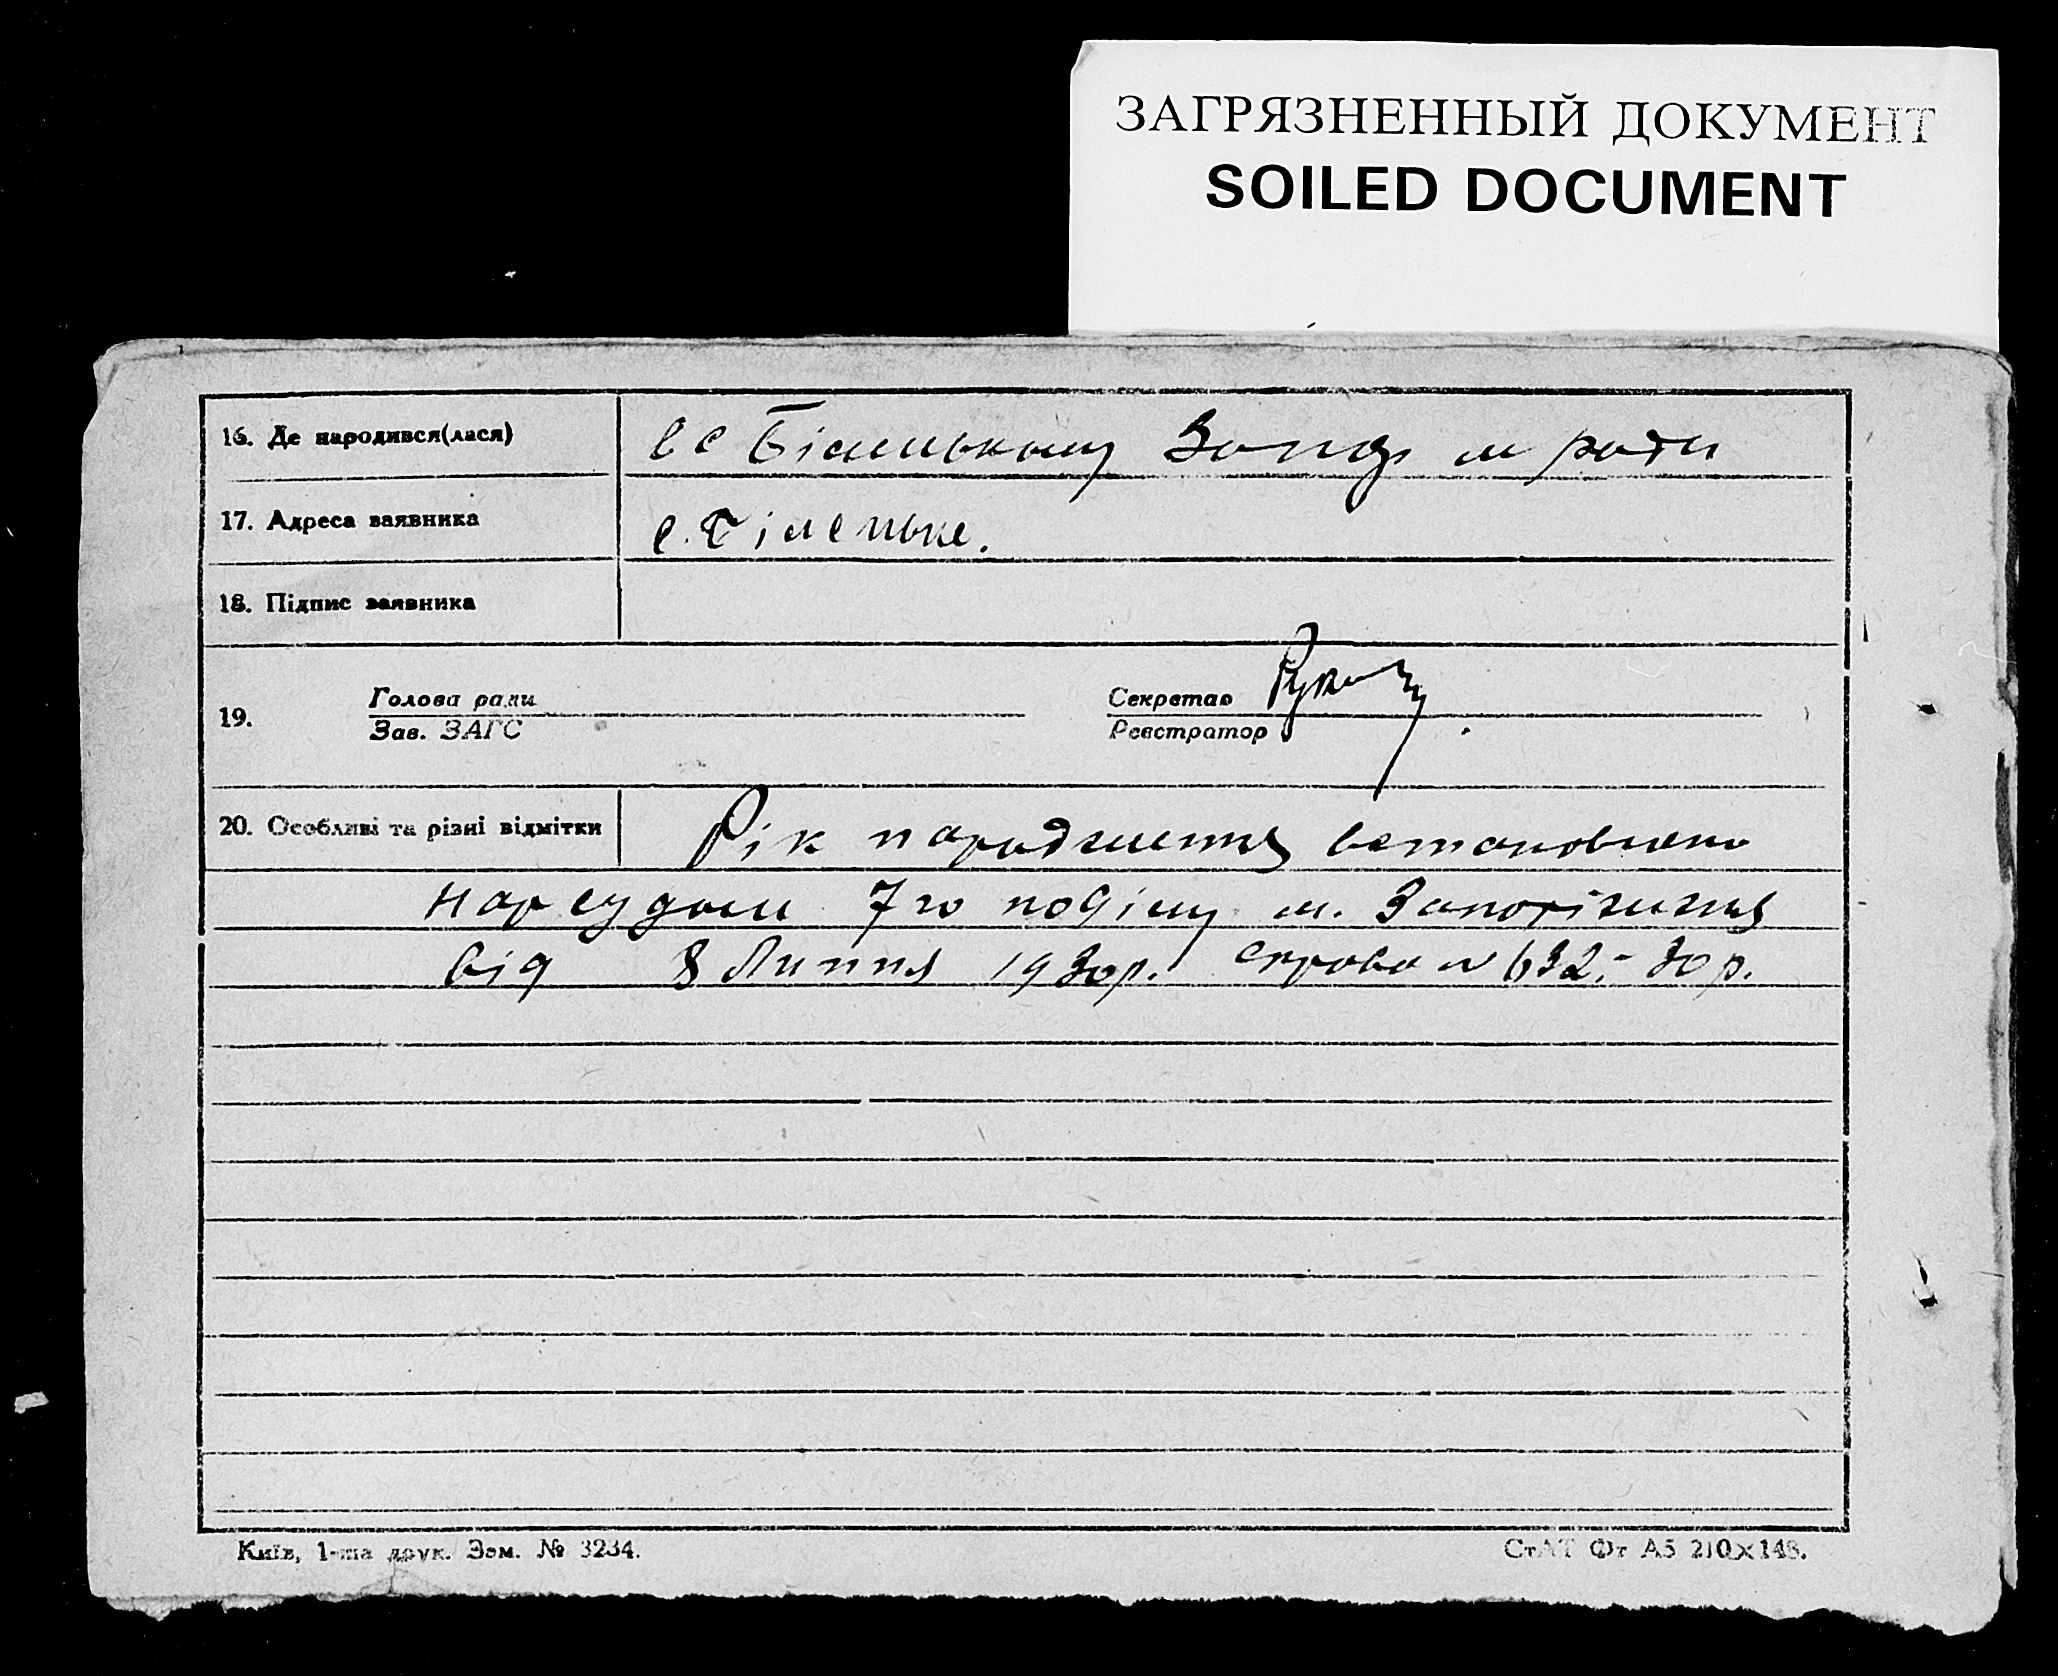 ЗАГРЯЗНЕННЫЙ ДОКУМЕНТ
SOILED DOCUMENT
16. Де народився(лася) в с Біленькому Запор м ради
17. Адреса заявника с. Біленьке.
18. Підпис заявника
19. Голова ради Секретар
Зав. ЗАГС Реєстратор
20. Особливі та різні відмітки Рік народження встановлено
нарсудом 7го поділу м. Запоріжжя
від 8 Липня 1930р. справа № 632.- 30 р.
Київ, 1-ша друк. Зам. № 3234. СтАТ Фт А5 210×148.